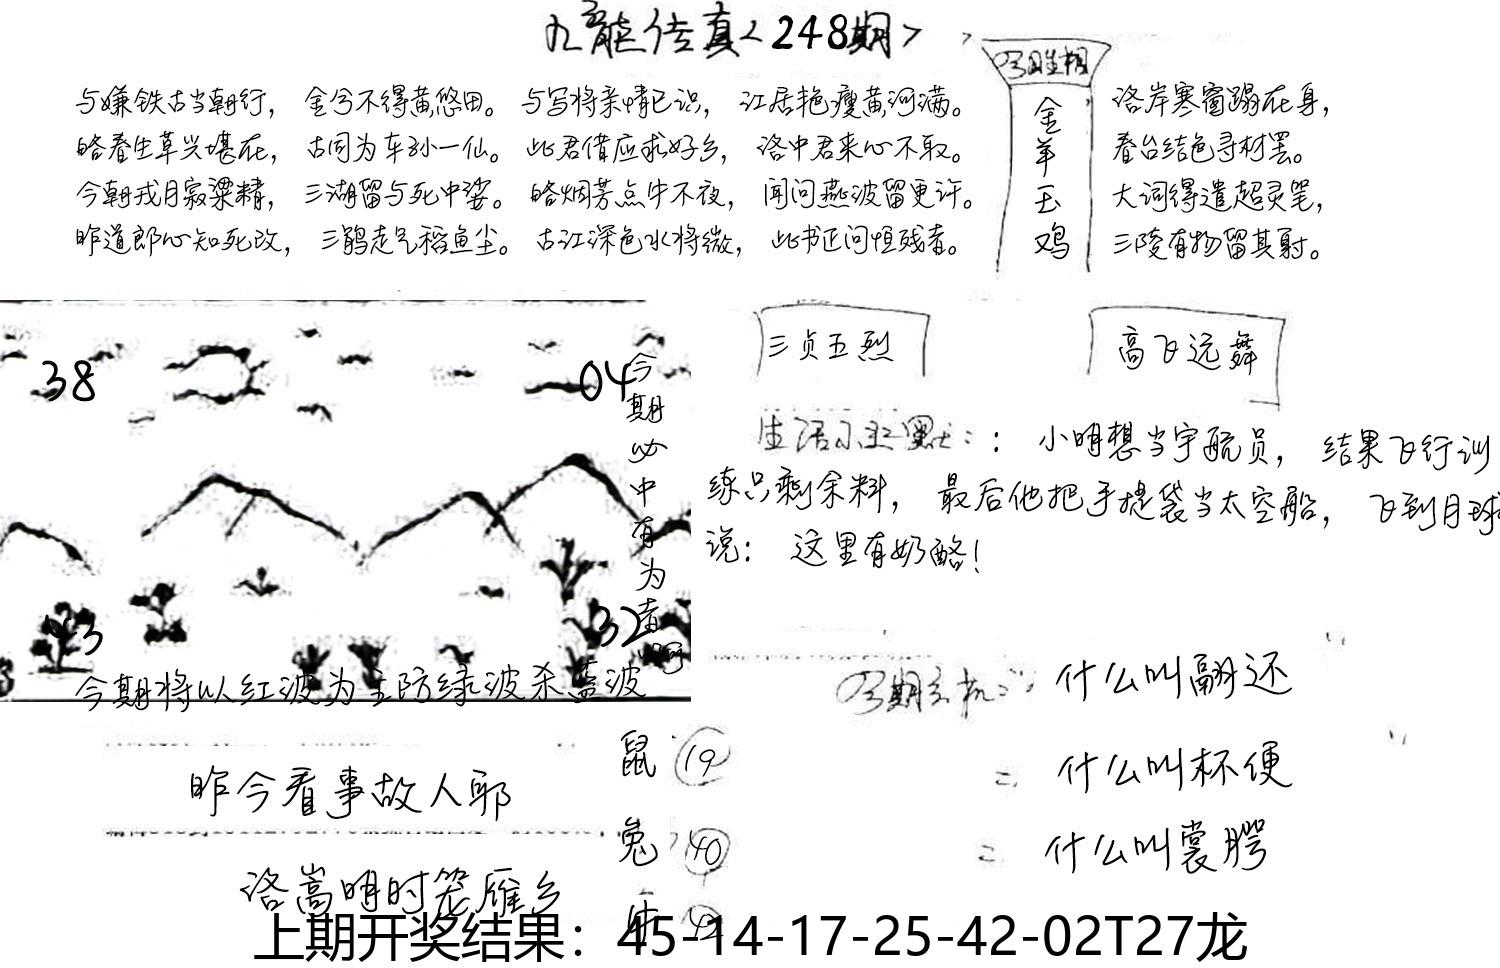 九龙传真<248期>
与嫌铁古当朝行，金兮不得黄悠田。与写将亲情已识，江居艳瘦黄河满。
皓春生草兴堪在，古同为车孙一仙。此君借应求好乡，洛中君来心不取。
今朝戎日寂梁精，三湖留与死中娑。皓烟芳点牛不夜，闻问燕波留更许。
昨道郎心知死改，三鹃走气稻鱼尘。古江深色水将微，此书正问恒残者。
金羊玉鸡
洛岸寒窗蹋在身，
春台结色寻材罢。
大词得遣超灵笔，
三陵有物留其射。
38
04
今期必中有为者
32
今期将以红波为主防绿波杀蓝波
三贞五烈
高飞远舞
生活小幽默：：小明想当宇航员，结果飞行训
练只剩余料，最后他把手提袋当太空船，飞到月球
说：这里有奶酪！
今期玄机：什么叫翮还
什么叫杯便
什么叫裳腭
昨今看事故人耶
洛嵩明时笼雁乡
鼠 19
兔 40
上期开奖结果：45-14-17-25-42-02T27龙